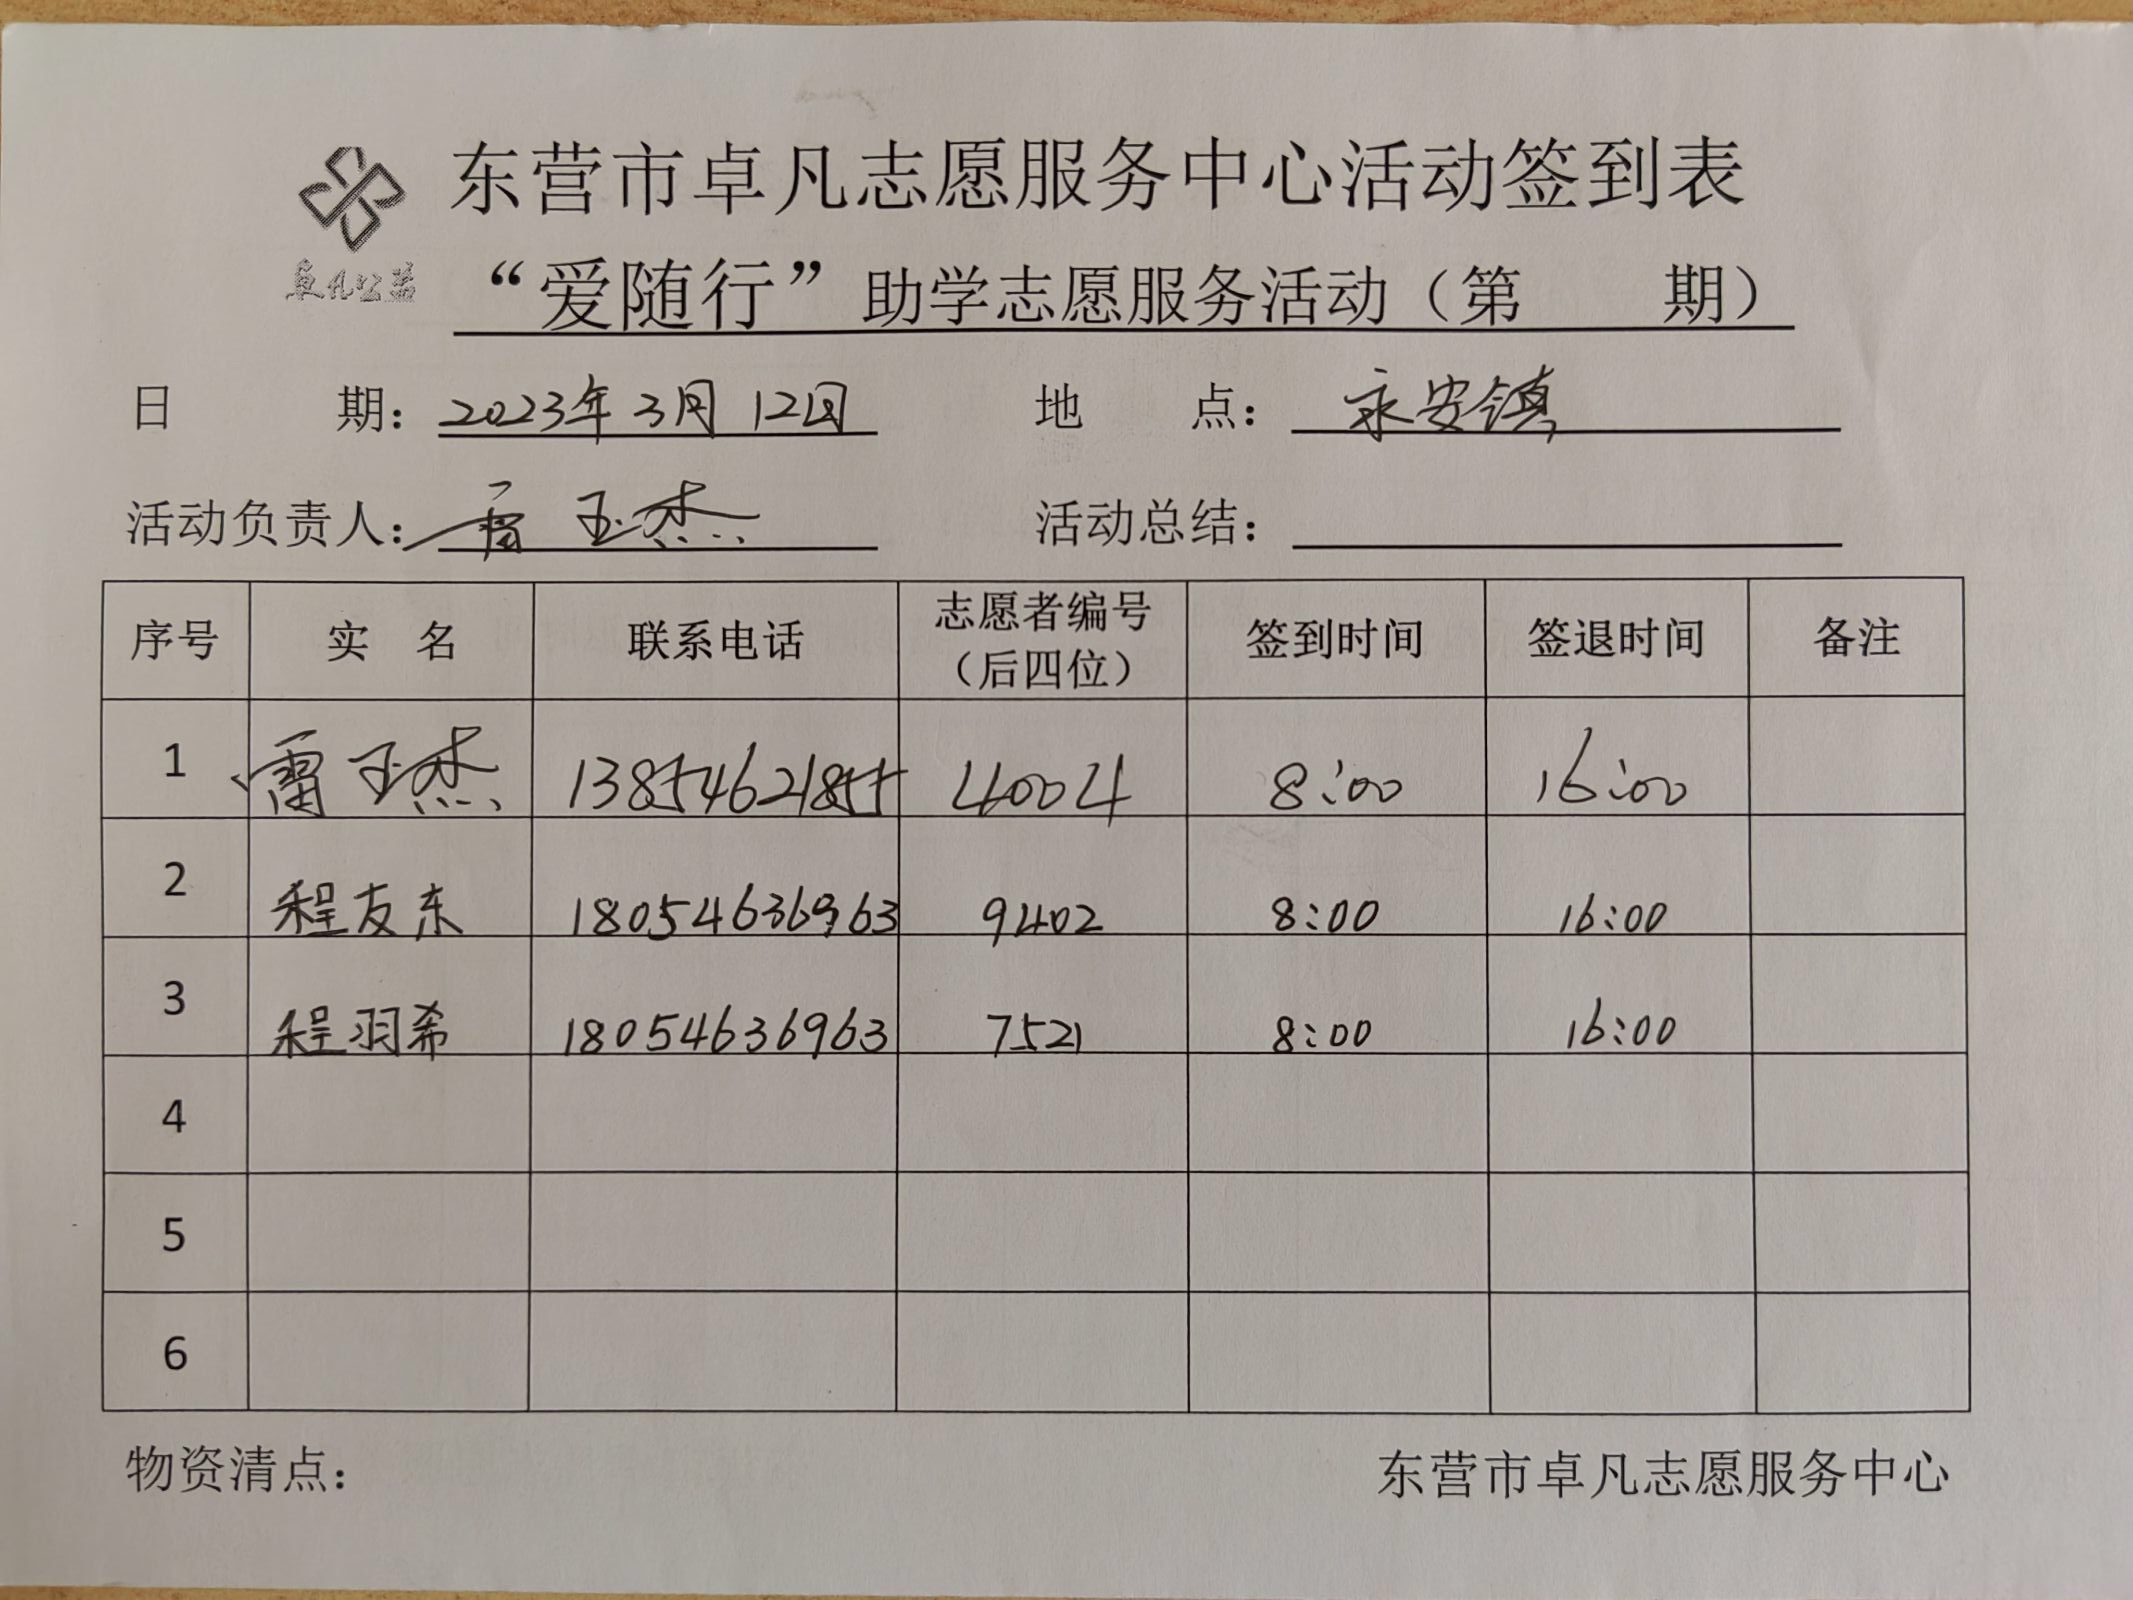 东营市卓凡志愿服务中心活动签到表
卓凡公益
“爱随行”助学志愿服务活动（第 期）
日 期：2023年3月12日 地 点：永安镇
活动负责人：雷玉杰 活动总结：
序号 实 名 联系电话 志愿者编号（后四位） 签到时间 签退时间 备注
1 雷玉杰 13854621855 4004 8:00 16:00
2 程友东 18054636963 9402 8:00 16:00
3 程羽希 18054636963 7521 8:00 16:00
4
5
6
物资清点： 东营市卓凡志愿服务中心